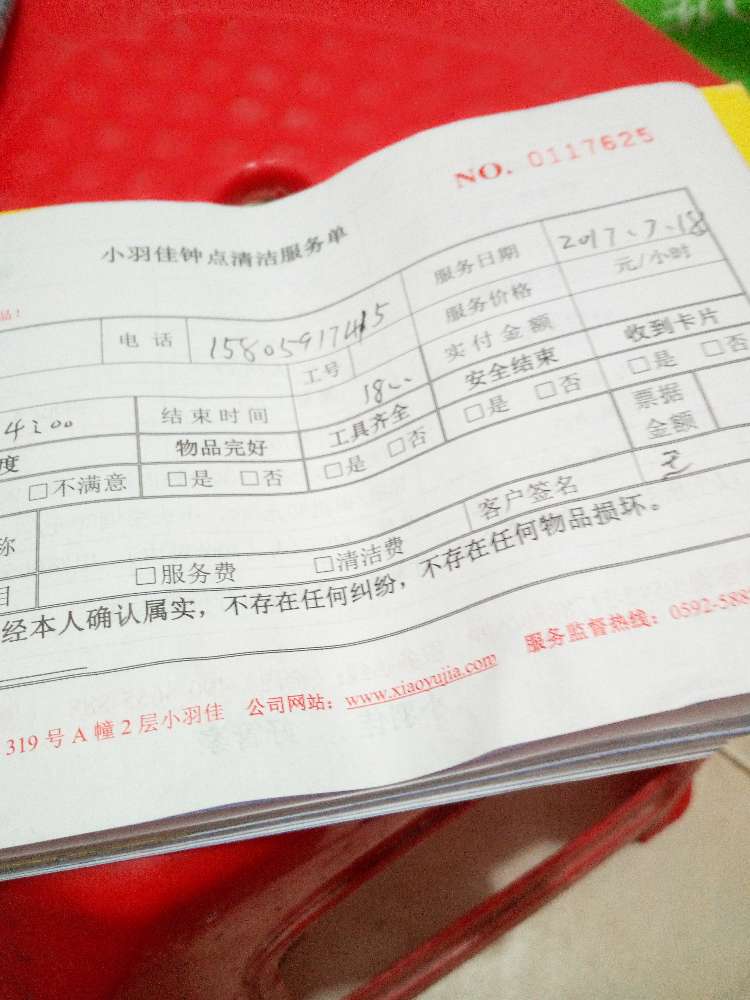 NO. 0117625
小羽佳钟点清洁服务单
品!
电话 15805917415 服务日期 2017、7、18
工号 服务价格 元/小时
4:00 结束时间 18 实付金额 收到卡片
度 物品完好 工具齐全 安全结束 □是 □否
□不满意 □是 □否 □是 □否 □是 □否 票据金额
称 客户签名
目 □服务费 □清洁费
经本人确认属实，不存在任何纠纷，不存在任何物品损坏。
319号A幢2层小羽佳 公司网站：www.xiaoyujia.com 服务监督热线：0592-588